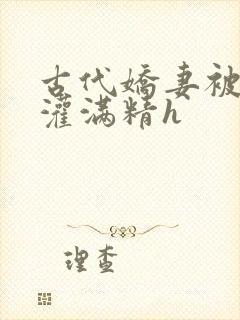 古代嬌妻被
灌满精h
理查